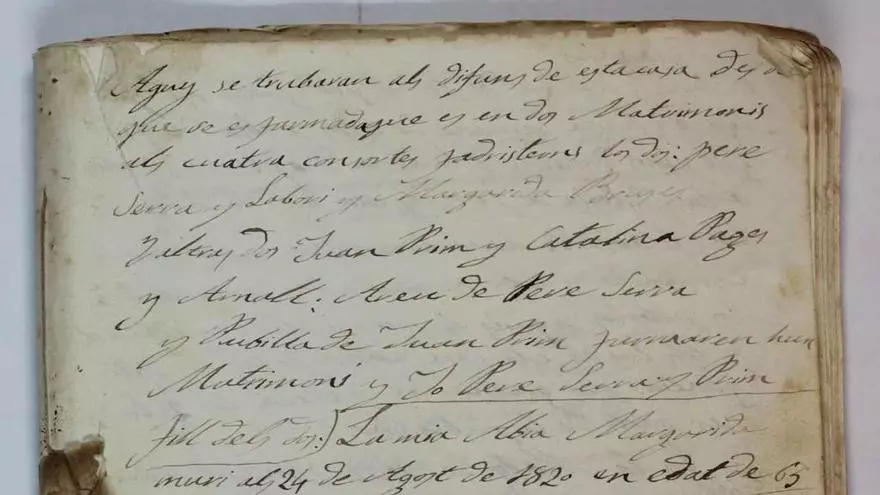 Aquy se trubaran als difuns de esta casa des de
que se es furmada que es en dos Matrimonis
als cuatra consortes padristerns los dos: pere
Serra y Labori y Margarida Bruges
Y altras dos Juan Prim y Catalina Pages
y Amall. Areu de Pere Serra
y Pubilla de Juan Prim furmaaren hun
Matrimoni y Jo Pere Serra y Prim
fill dels dos:) La mia Abia Margarida
muri als 24 de Agost de 1820 en edat de 65